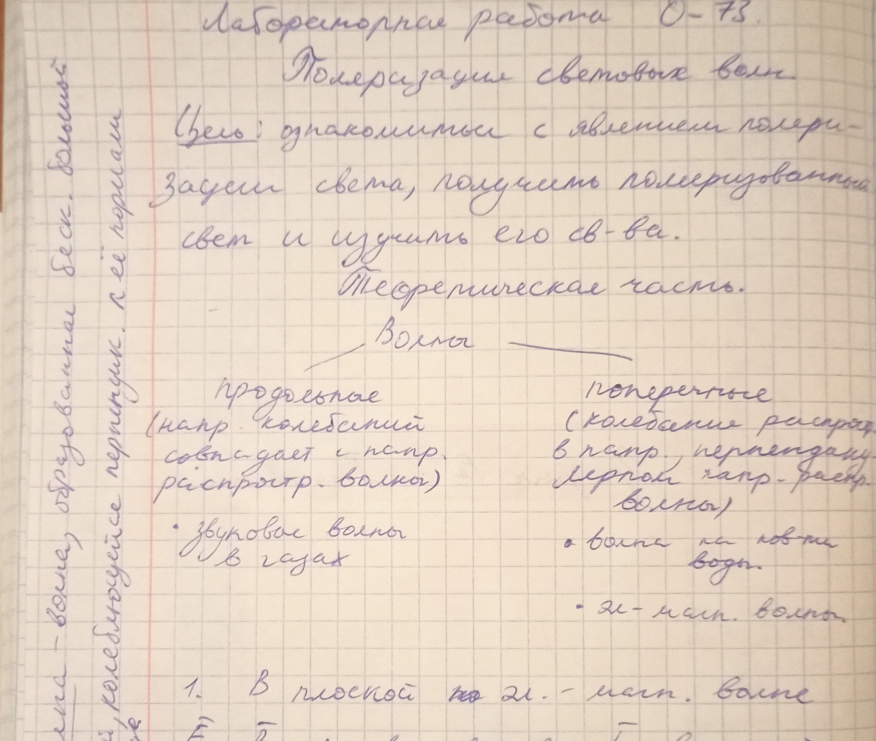 Лабораторная работа О-73.
Поляризация световых волн.
Цель: ознакомиться с явлением поляри-
зации света, получить поляризованный
свет и изучить его св-ва.
Теоретическая часть.
Волны
продольные
(напр. колебаний
совпадает с напр.
распростр. волны)
• звуковые волны
в газах
поперечные
(колебание распрост.
в напр., перпендику-
лярном напр. распр.
волны)
• волна на пов-ти
воды.
• эл-магн. волны.
1. В плоской эл.-магн. волне
волна, образованная беск. большой
колеблющейся перпендик. к её нормали